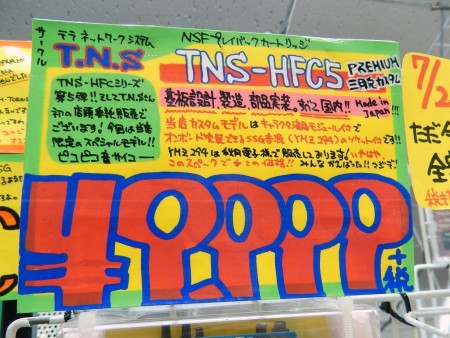 サークル
テラ ネットワーク システム
T.N.S
NSFプレイバックカートリッジ
TNS-HFC5
PREMIUM
三月兎カスタム
TNS-HFCシリーズ
第5弾!!そしてT.N.Sさん
初の店頭委託販売で
ございます!今回は当店
限定のスペシャルモデル!!
ピコピコ音サイコー
基板設計、製造、部品実装、すべて国内!!
Made in
Japan!!!
当店カスタムモデルは キャラクタ液晶モジュールつきで
オンボード状態でSSG音源(YMZ294)のソケットつきです!!
YMZ294は秋月電子様で販売しております!
このスペックで この価格!!
¥9,999
+税
7/2
ただ今
全
SG